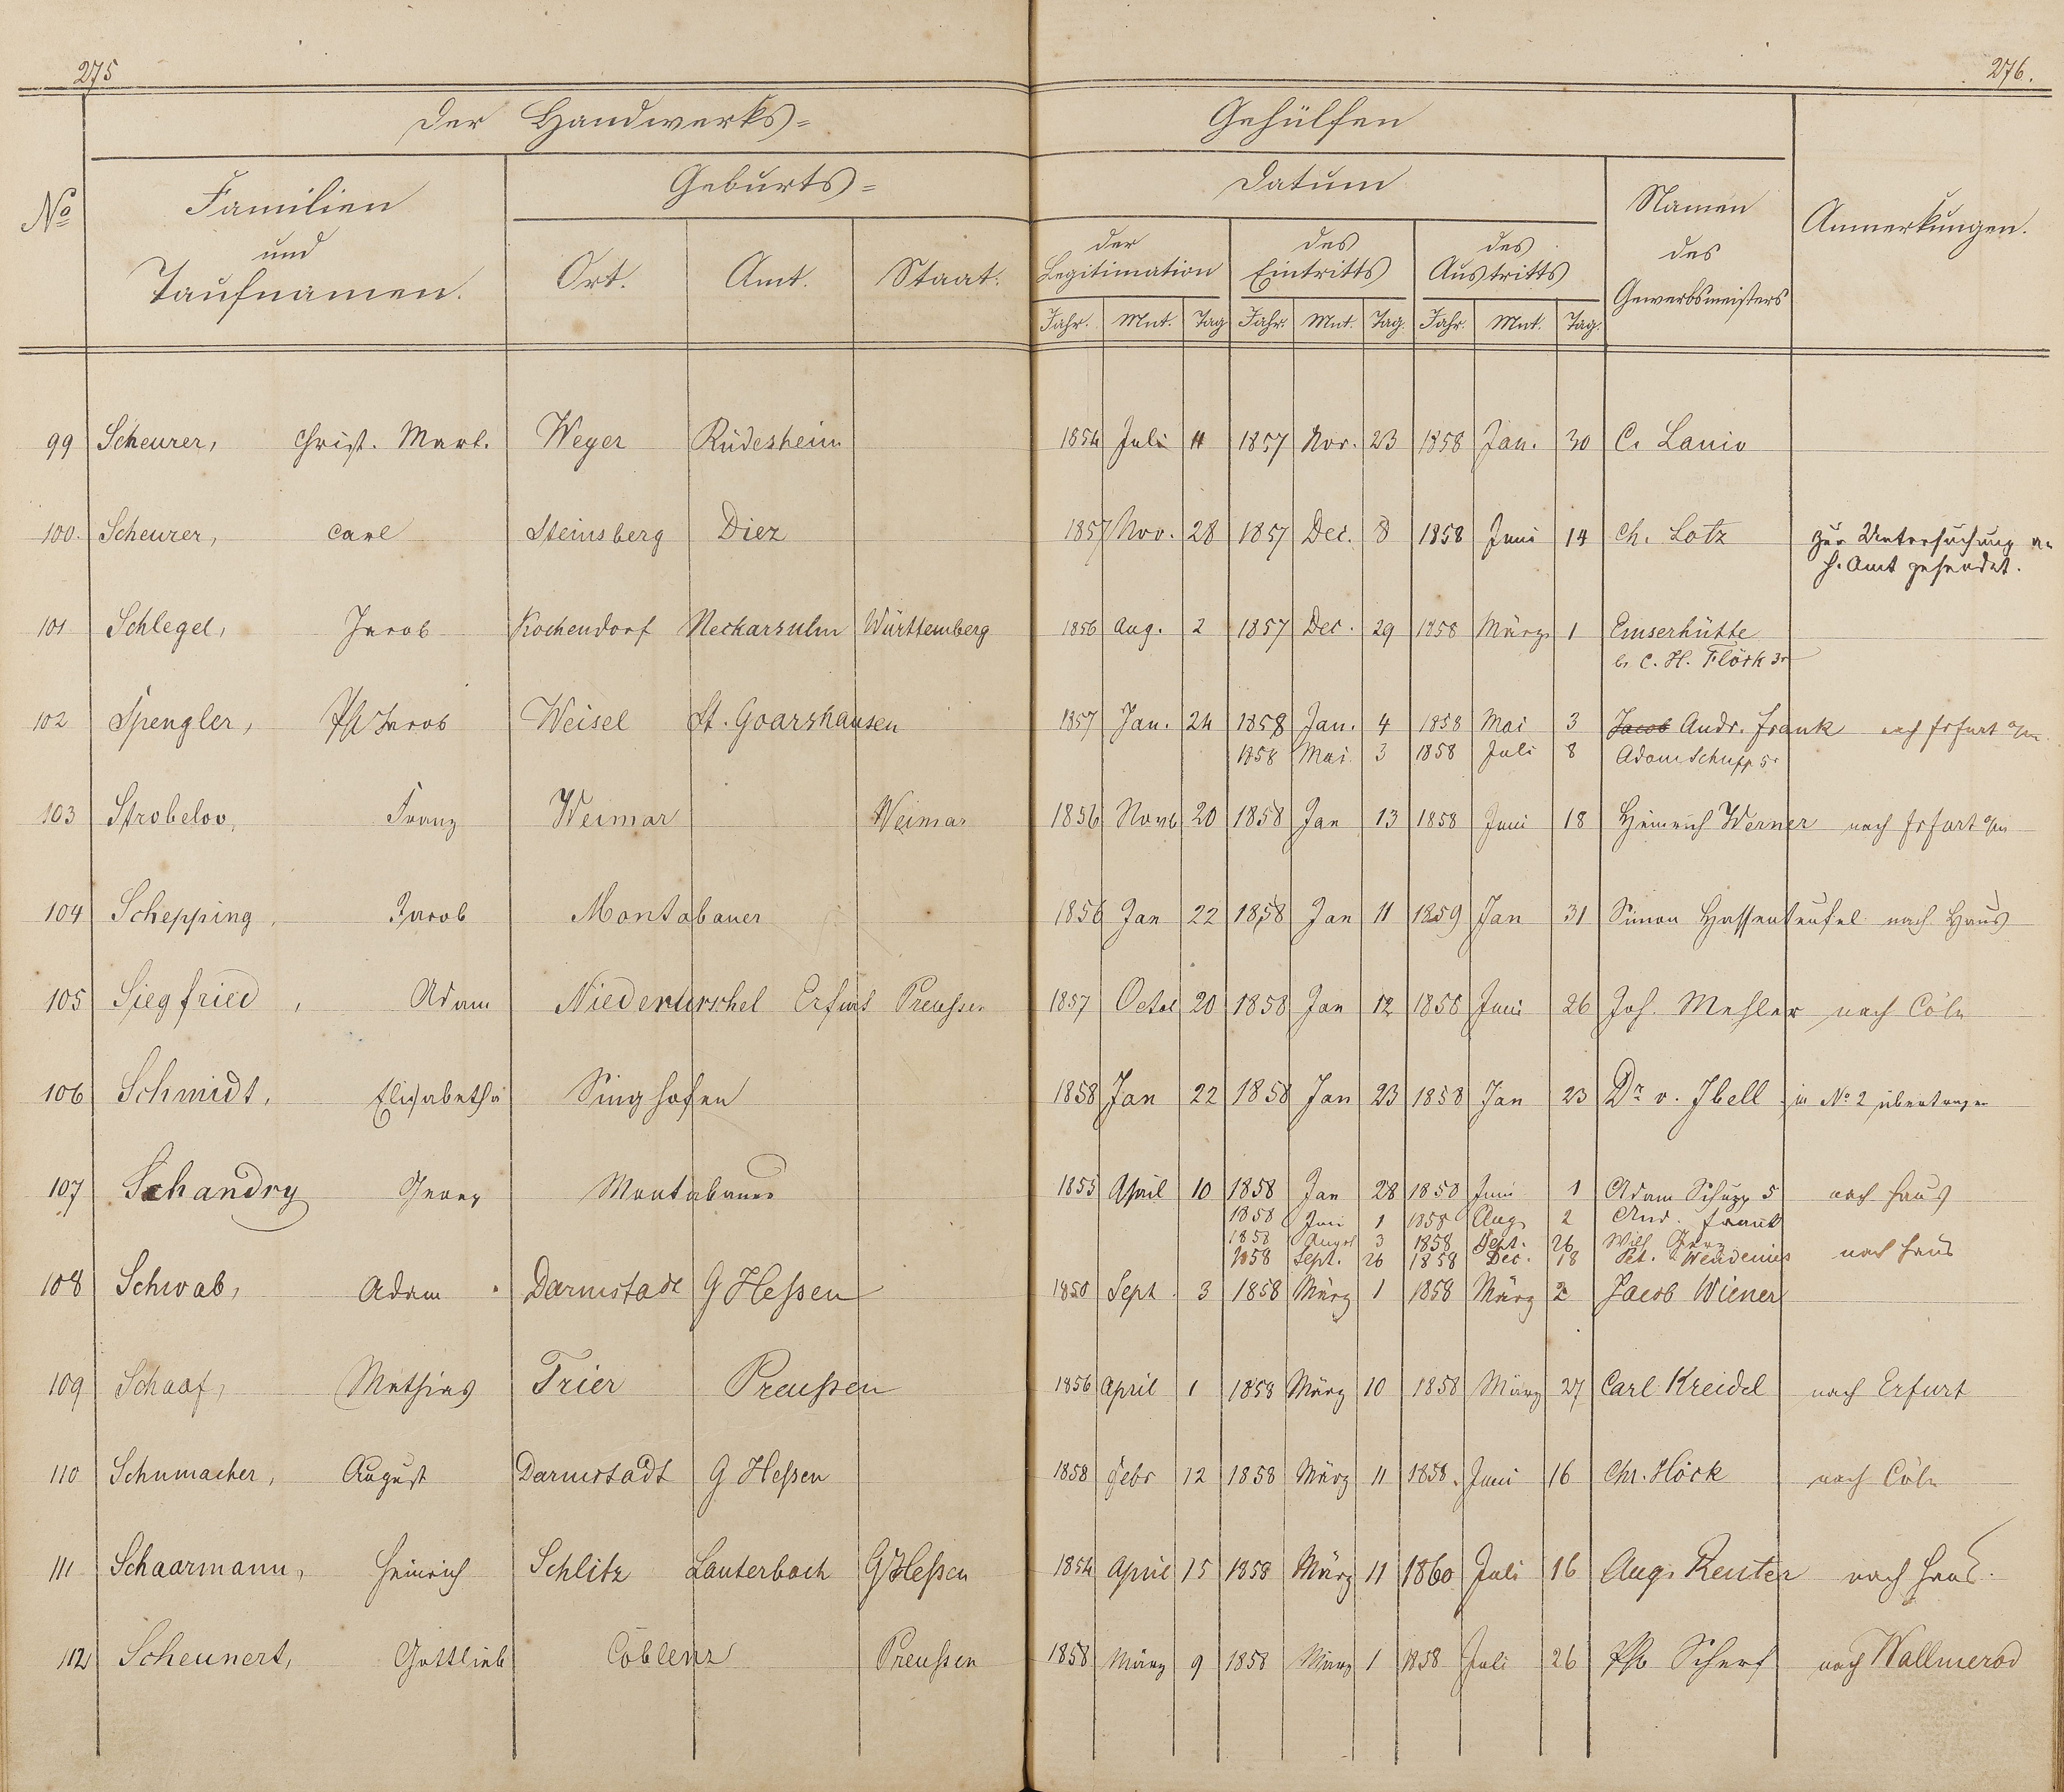 275
276.
Der Handwerks=
Gehülfen
No
Familien
und
Taufnamen.
Geburts=
Ort.
Amt.
Staat.
Datum
der
Legitimation
des
Eintritts
des
Austritts
Jahr. Mnt. Tag Jahr. Mnt. Tag. Jahr. Mnt. Tag.
Namen
des
Gewerbsmeisters
Anmerkungen.
99 Scheurer, Christ. Mart. Weyer Rüdesheim 1854 Juli 11 1857 Nov. 23 1858 Jan. 30 C. Lanio
100. Scheurer, Carl Steinsberg Diez 1857 Nov. 28 1857 Dec. 8 1858 Juni 14 Ch. Lotz zur Untersuchung an
H. Amt gesendet.
101 Schlegel, Jacob Kochendorf Neckarsulm Württemberg 1856 Aug. 2 1857 Dec. 29 1858 März 1 Emserhütte
b. C. H. Flörk 3r
102 Spengler, Ph Jacob Weisel St. Goarshausen 1857 Jan. 24 1858 Jan. 4 1858 Mai 3 Jacob Andr. Frank nach Frfurt a/m
1858 Mai. 3 1858 Juli 8 Adam Schupp 5r
103 Strobelov, Franz Weimar Weimar 1856 Novb 20 1858 Jan 13 1858 Juni 18 Heinrich Werner nach Frfurt a/m
104 Schepping, Jacob Montabauer 1856 Jan 22 1858 Jan 11 1859 Jan 31 Simon Hassenteufel nach Haus
105 Siegfried, Adam Niederurschel Erfurt Preußen 1857 Octob 20 1858 Jan 12 1858 Juni 26 Joh. Mehler nach Cöln
106 Schmidt, Elisabetha Singhofen 1858 Jan 22 1858 Jan 23 1858 Jan 23 Dr v. Ibell in No 2 übertragen
107 Schandry Georg Montabauer 1855 April 10 1858 Jan 28 1858 Juni 1 Adam Schupp 5 nach Haus
1858 Juni 1 1858 Aug. 2 And. Frank
1858 August 3 1858 Sept. 26 Wilh
1858 Sept. 26 1858 Dec. 18 Pet. Wendenius nach Haus
108 Schwab, Adam Darmstadt G Heßen 1850 Sept 3 1858 März 1 1858 März 2 Jacob Wiener
109 Schaaf, Mathias Trier Preußen 1856 April 1 1858 März 10 1858 März 27 Carl Kreidel nach Erfurt
110 Schumacher, August Darmstadt G Heßen 1858 Febr 12 1858 März 11 1858. Juni 16 Chr. Hörk nach Cöln
111 Schaarmann, Heinrich Schlitz Lauterbach G Heßen 1854 April 15 1858 März 11 1860 Juli 16 Aug. Reuter nach Haus.
112 Scheunert, Gottlieb Coblenz Preußen 1858 März 9 1858 März 1 1858 Juli 26 Ph Scherf nach Wallmerod